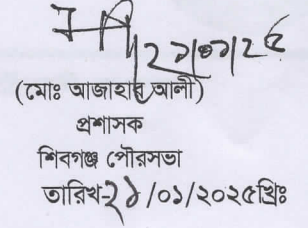 (মোঃ আজাহার আলী)
প্রশাসক
শিবগঞ্জ পৌরসভা
তারিখ-২১/০১/২০২৫খ্রিঃ